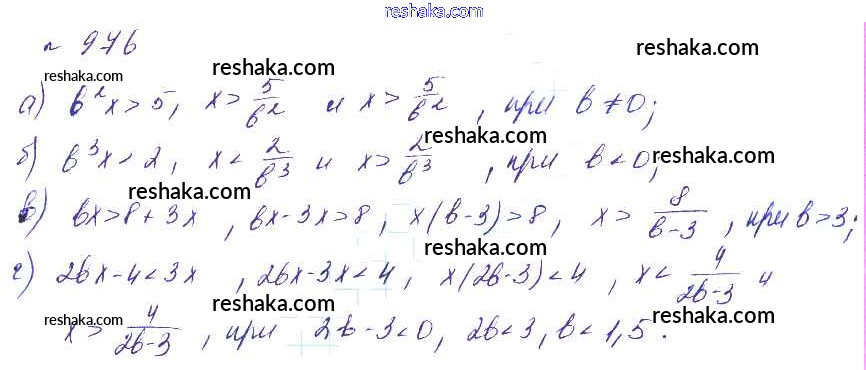 reshaka.com
№ 976
reshaka.com reshaka.com reshaka.com
а) b²x > 5, x > 5/b² и x > 5/b², при b ≠ 0;
reshaka.com
б) b³x < 2, x < 2/b³ и x > 2/b³, при b < 0;
reshaka.com reshaka.com
в) bx > 8 + 3x, bx - 3x > 8, x(b-3) > 8, x > 8/(b-3), при b > 3;
reshaka.com reshaka.com
г) 2bx - 4 < 3x, 2bx - 3x < 4, x(2b-3) < 4, x < 4/(2b-3) и
reshaka.com reshaka.com
x > 4/(2b-3), при 2b - 3 < 0, 2b < 3, b < 1,5.